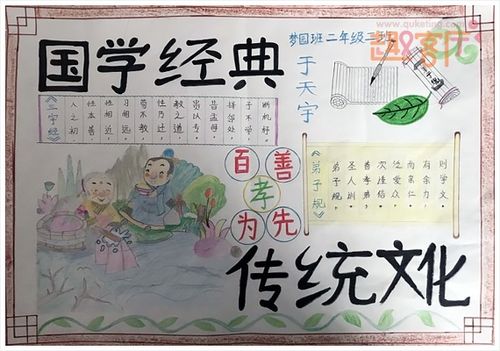 www.quketing.com
趣客厅
梦园班二年级三班
于天宇
国学经典
《三字经》
人之初,
性本善,
性相近,
习相远,
苟不教,
性乃迁,
教之道,
贵以专,
昔孟母,
择邻处,
子不学,
断机杼,
百善
孝
为先
《弟子规》
弟子规,
圣人训,
次谨信,
泛爱众,
而亲仁,
有余力,
则学文,
传统文化